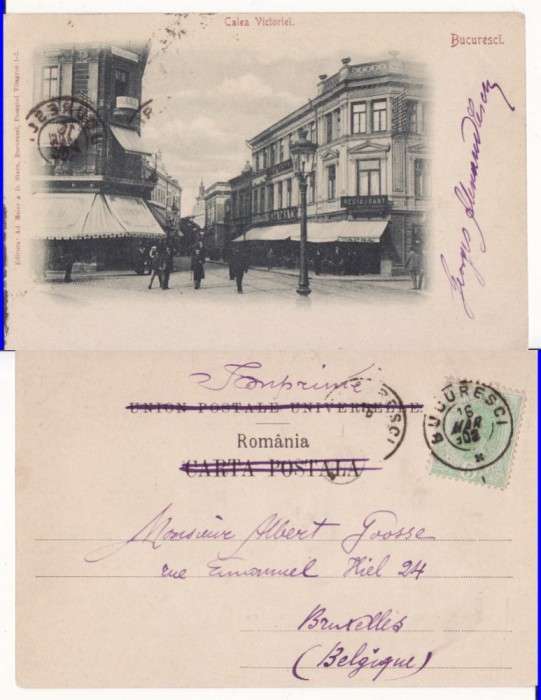 Calea Victoriei.
Bucuresci.
Editura: Ad. Maier & D. Stern, Bucuresci, Pasagiul Villagros 1-3.
RESTAURANT
Georges
Imprimé
UNION POSTALE UNIVERSELLE
România
CARTA POSTALA
BUCURESCI
16
MAR
902
Monsieur Albert Goosse
rue Emmanuel Hiel 24
Bruxelles
(Belgique)